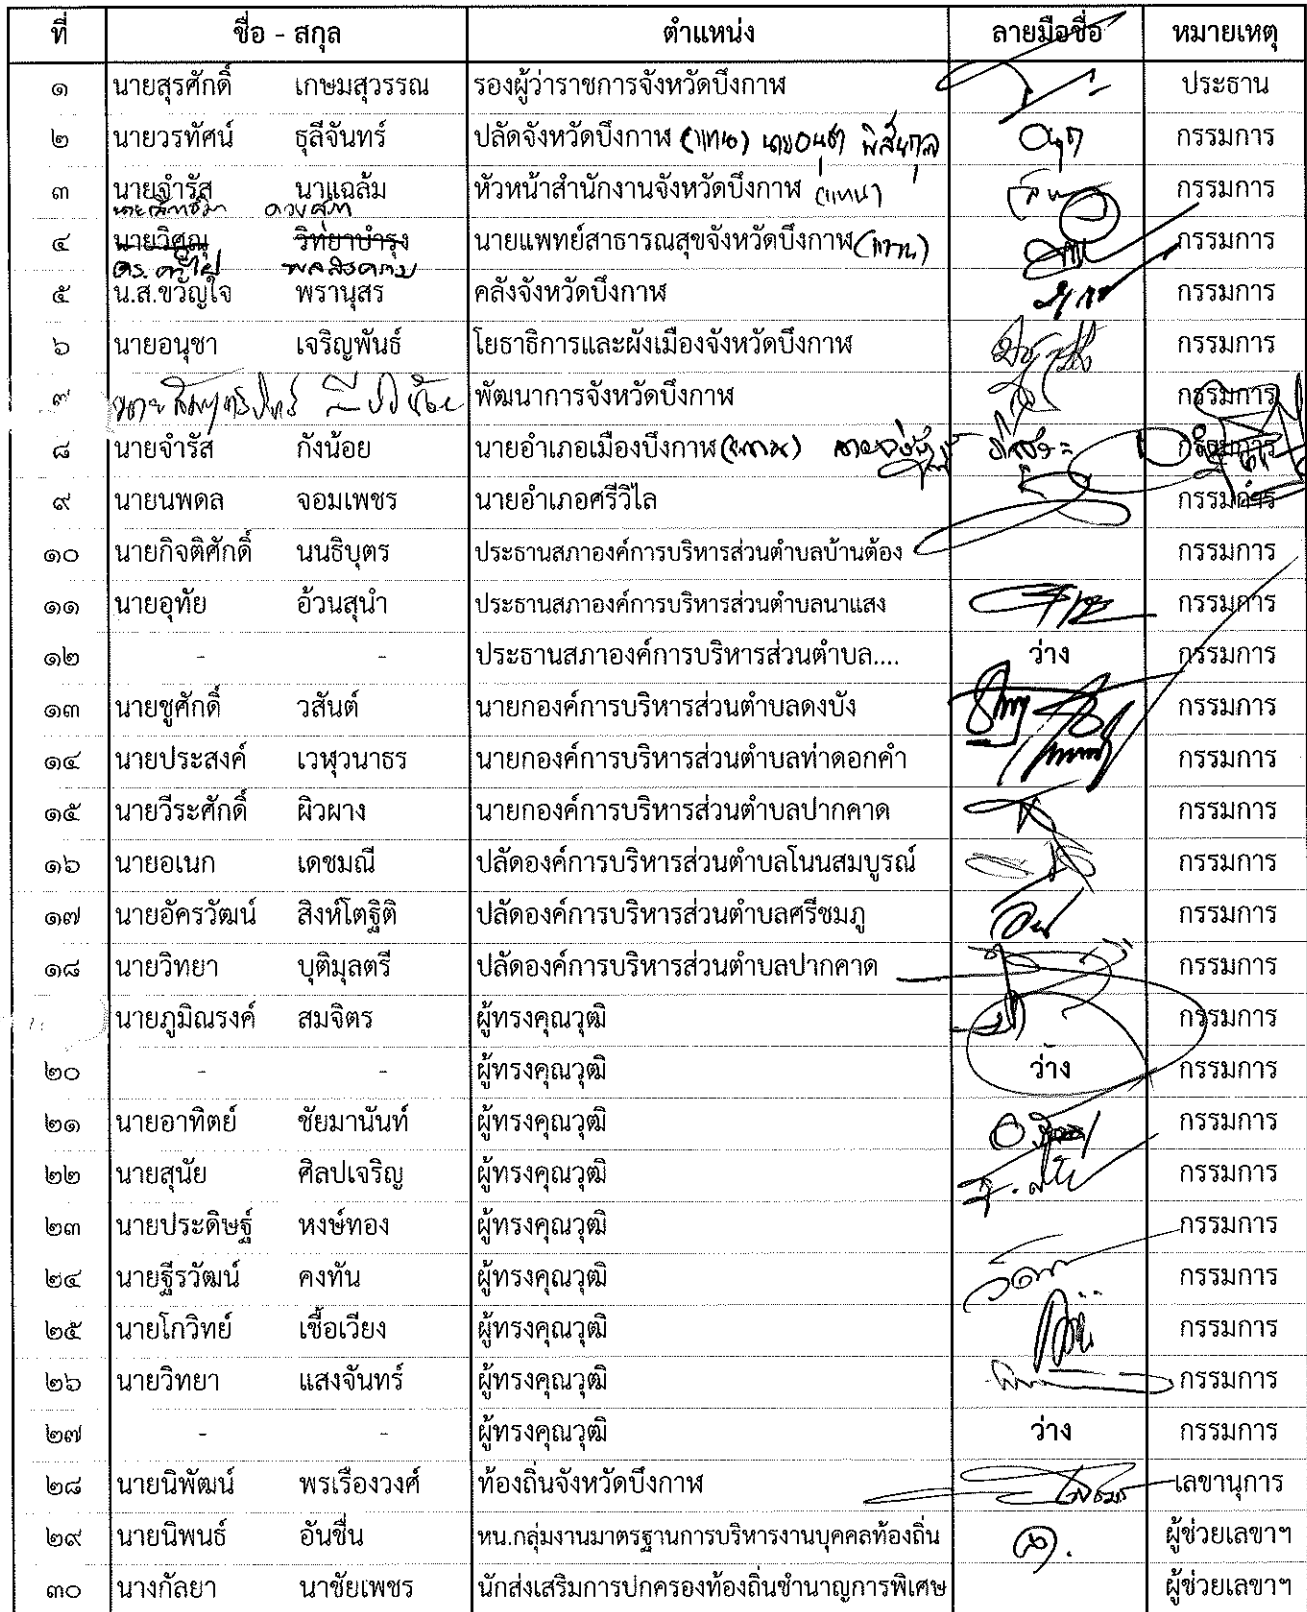 ที่ ชื่อ - สกุล ตำแหน่ง ลายมือชื่อ หมายเหตุ
๑ นายสุรศักดิ์ เกษมสุวรรณ รองผู้ว่าราชการจังหวัดบึงกาฬ ประธาน
๒ นายวรทัศน์ ธุลีจันทร์ ปลัดจังหวัดบึงกาฬ (แทน) กรรมการ
๓ นายจำรัส นาแฉล้ม หัวหน้าสำนักงานจังหวัดบึงกาฬ (แทน) กรรมการ
๔ นายวิศณุ วิทยาบำรุง นายแพทย์สาธารณสุขจังหวัดบึงกาฬ (แทน) กรรมการ
๕ น.ส.ขวัญใจ พรานุสร คลังจังหวัดบึงกาฬ กรรมการ
๖ นายอนุชา เจริญพันธ์ โยธาธิการและผังเมืองจังหวัดบึงกาฬ กรรมการ
๗ พัฒนาการจังหวัดบึงกาฬ กรรมการ
๘ นายจำรัส กังน้อย นายอำเภอเมืองบึงกาฬ (แทน) กรรมการ
๙ นายนพดล จอมเพชร นายอำเภอศรีวิไล กรรมการ
๑๐ นายกิจติศักดิ์ นนธิบุตร ประธานสภาองค์การบริหารส่วนตำบลบ้านต้อง กรรมการ
๑๑ นายอุทัย อ้วนสุนำ ประธานสภาองค์การบริหารส่วนตำบลนาแสง กรรมการ
๑๒ - - ประธานสภาองค์การบริหารส่วนตำบล.... ว่าง กรรมการ
๑๓ นายชูศักดิ์ วสันต์ นายกองค์การบริหารส่วนตำบลดงบัง กรรมการ
๑๔ นายประสงค์ เวฬุวนาธร นายกองค์การบริหารส่วนตำบลท่าดอกคำ กรรมการ
๑๕ นายวีระศักดิ์ ผิวผาง นายกองค์การบริหารส่วนตำบลปากคาด กรรมการ
๑๖ นายอเนก เดชมณี ปลัดองค์การบริหารส่วนตำบลโนนสมบูรณ์ กรรมการ
๑๗ นายอัครวัฒน์ สิงห์โตฐิติ ปลัดองค์การบริหารส่วนตำบลศรีชมภู กรรมการ
๑๘ นายวิทยา บุติมุลตรี ปลัดองค์การบริหารส่วนตำบลปากคาด กรรมการ
นายภูมิณรงค์ สมจิตร ผู้ทรงคุณวุฒิ กรรมการ
๒๐ - - ผู้ทรงคุณวุฒิ ว่าง กรรมการ
๒๑ นายอาทิตย์ ชัยมานันท์ ผู้ทรงคุณวุฒิ กรรมการ
๒๒ นายสุนัย ศิลปเจริญ ผู้ทรงคุณวุฒิ กรรมการ
๒๓ นายประดิษฐ์ หงษ์ทอง ผู้ทรงคุณวุฒิ กรรมการ
๒๔ นายฐีรวัฒน์ คงทัน ผู้ทรงคุณวุฒิ กรรมการ
๒๕ นายโกวิทย์ เชื้อเวียง ผู้ทรงคุณวุฒิ กรรมการ
๒๖ นายวิทยา แสงจันทร์ ผู้ทรงคุณวุฒิ กรรมการ
๒๗ - - ผู้ทรงคุณวุฒิ ว่าง กรรมการ
๒๘ นายนิพัฒน์ พรเรืองวงศ์ ท้องถิ่นจังหวัดบึงกาฬ เลขานุการ
๒๙ นายนิพนธ์ อันชื่น หน.กลุ่มงานมาตรฐานการบริหารงานบุคคลท้องถิ่น ผู้ช่วยเลขาฯ
๓๐ นางกัลยา นาชัยเพชร นักส่งเสริมการปกครองท้องถิ่นชำนาญการพิเศษ ผู้ช่วยเลขาฯ